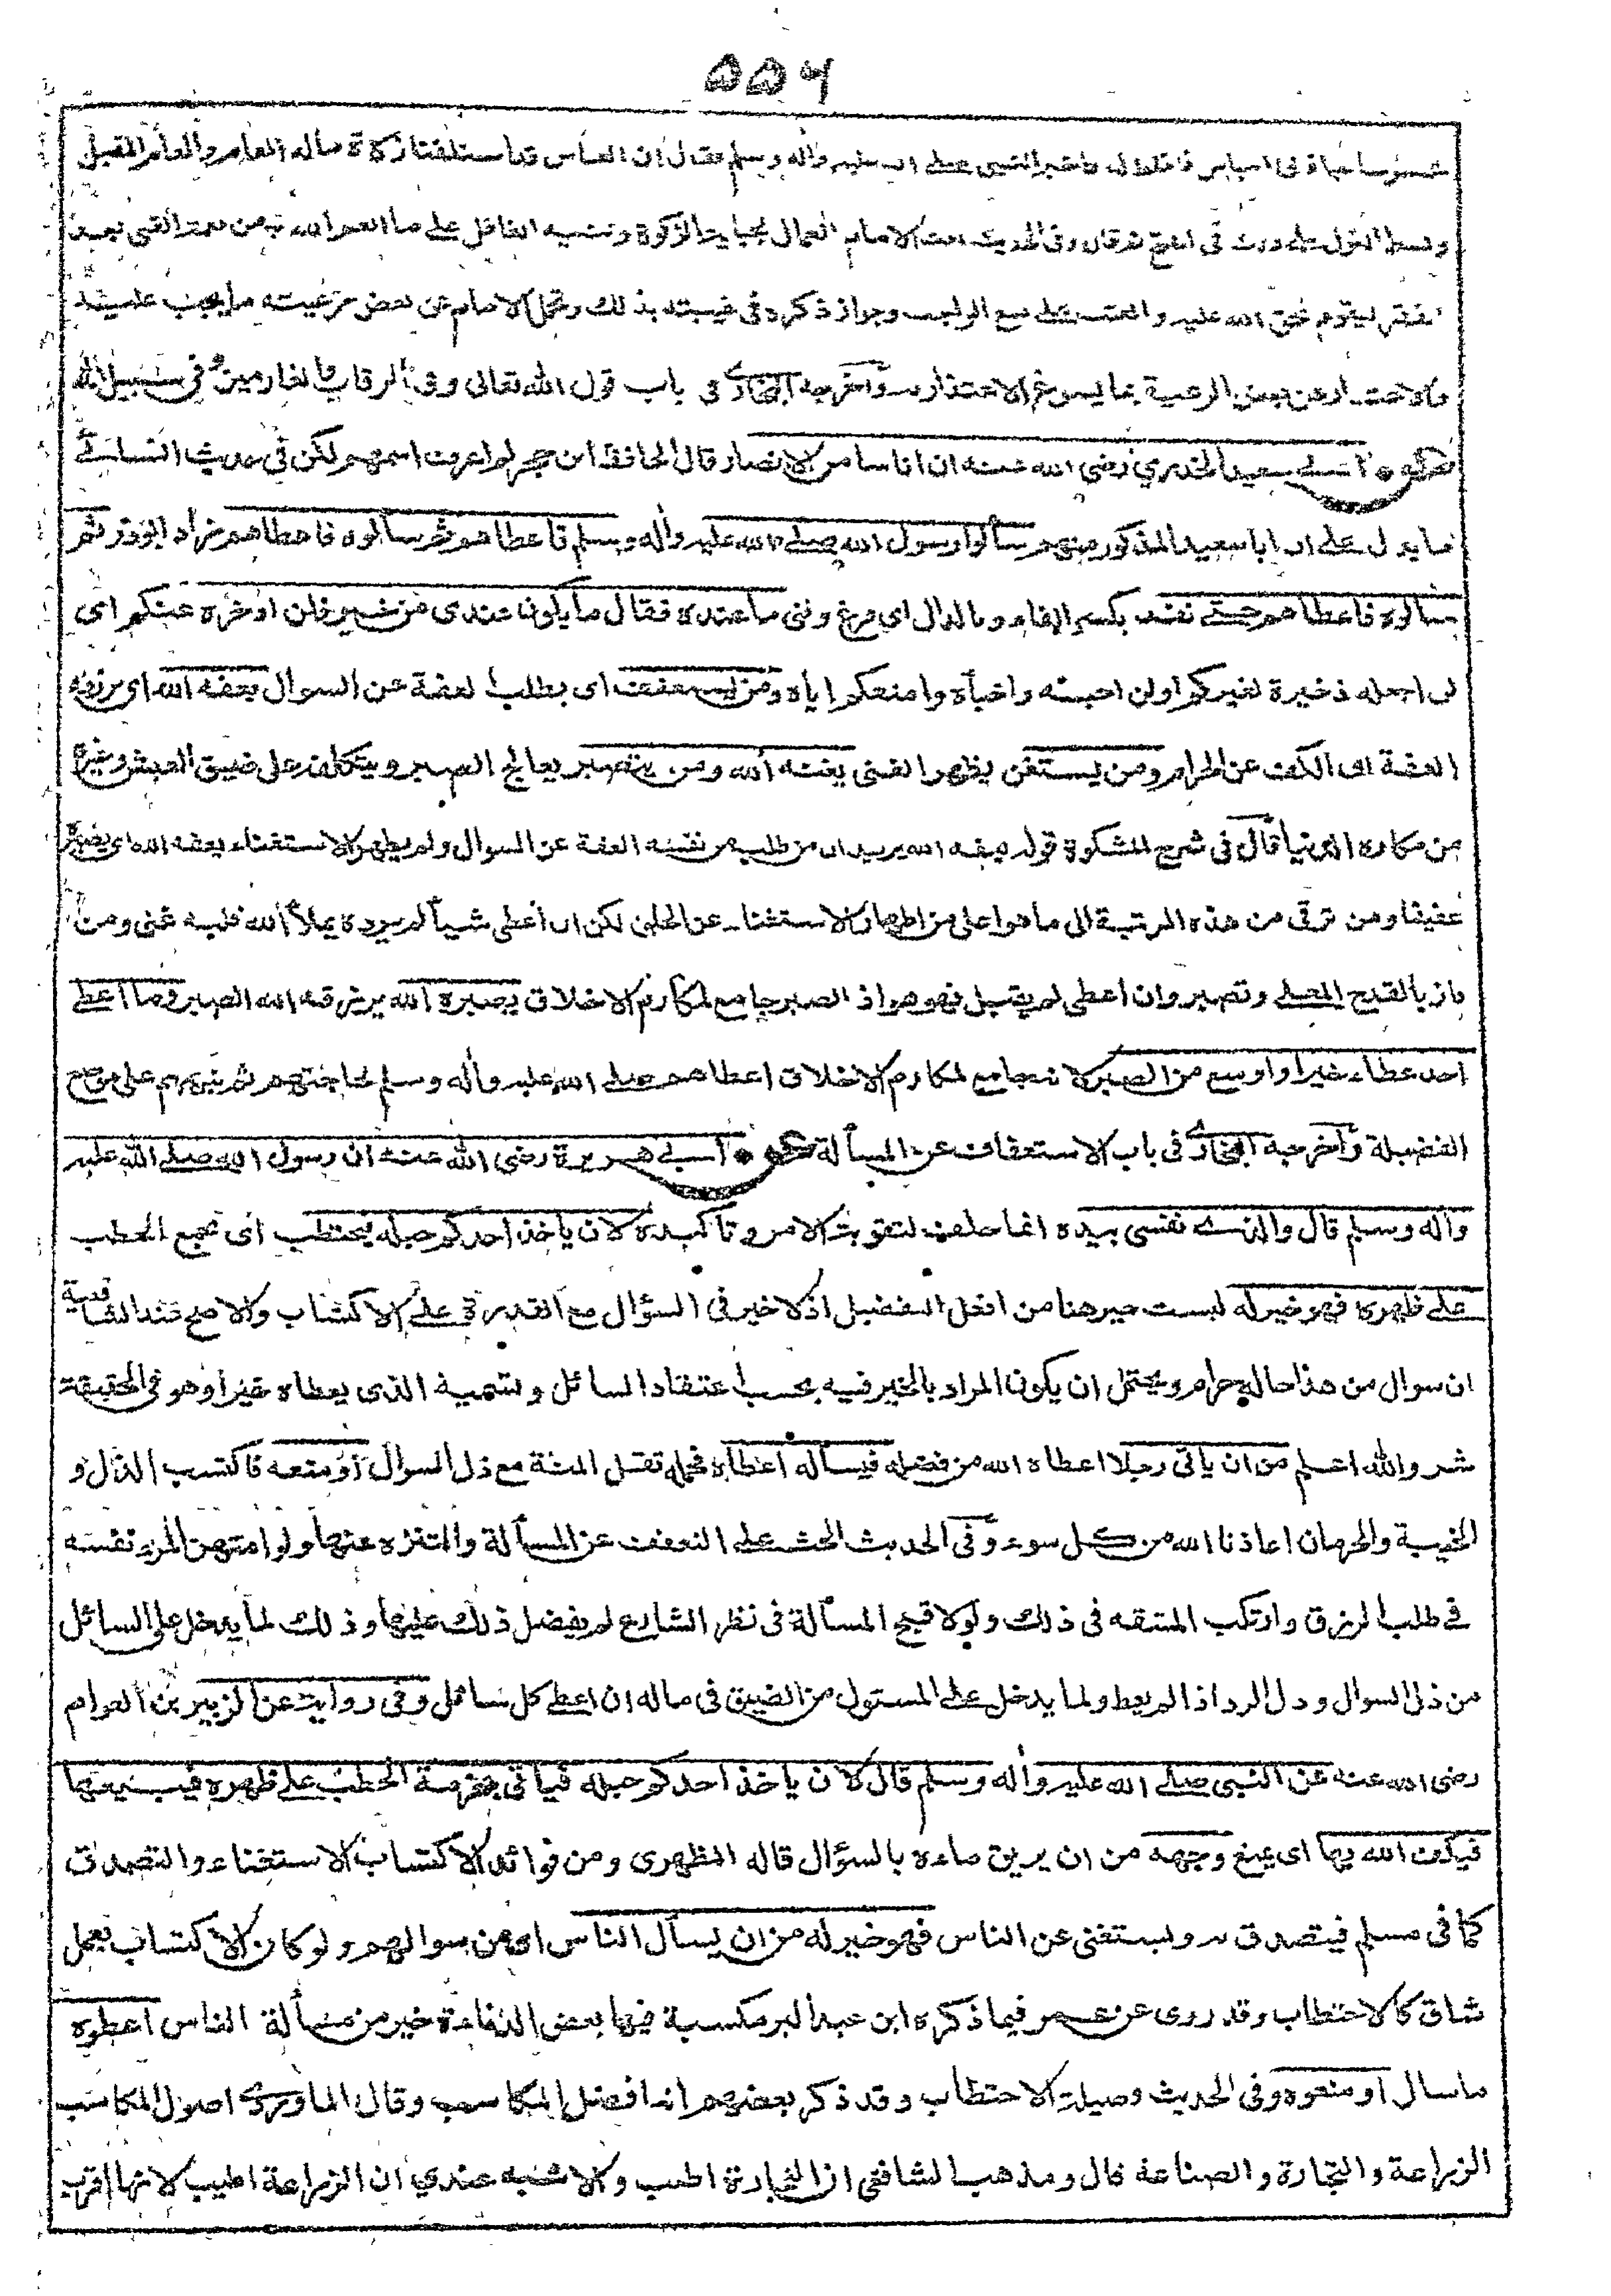 ٥٥٦
فاخبر النبي صلى الله عليه وآله وسلم فقال ان العباس قد استلفنا زكاة ماله العام والعام المقبل
وبسط القول في الفتح ثم قال وفي الحديث بعث الامام العمال لجباية الزكوة وتنبيه الغافل على ما انعم الله به من نعمة الغنى بعد
الفقر ليقوم بحق الله عليه والعتب على منع الواجب وجواز ذكره في غيبته بذلك وتحمل الامام عن بعض رعيته ما يجب عليه
والاعتذار عن بعض الرعية بما يسوغ الاعتذار به وأخرجه البخاري في باب قول الله تعالى وفي الرقاب والغارمين وفي سبيل الله
عن ابي سعيد الخدري رضى الله عنه ان اناسا من الانصار قال الحافظ ابن حجر لم اعرف اسمهم لكن في حديث النسائي
ما يدل على ان ابا سعيد المذكور منهم سألوا رسول الله صلى الله عليه وآله وسلم فاعطاهم ثم سألوه فاعطاهم زاد ابو ذر ثم
سألوه فاعطاهم حتى نفد بكسر الفاء وبالدال اى فرغ وفنى ما عنده فقال ما يكون عندى من خير فلن ادخره عنكم اى
لن اجعله ذخيرة لغيركم او لن احبسه واخبأه وامنعكم اياه ومن يستعفف اى يطلب العفة عن السوال يعفه الله اى يرزقه
العفة اى الكف عن الحرام ومن يستغن يظهر الغنى يغنه الله ومن يتصبر يعالج الصبر ويتكلف على ضيق العيش وغيره
من مكاره الدنيا قال فى شرح المشكوة قوله يعفه الله يريد ان من طلب من نفسه العفة عن السوال ولم يظهر الاستغناء يعفه الله اى يصيره
عفيفا ومن ترقى من هذه المرتبة الى ما هو اعلى من اظهار الاستغناء عن الخلق لكن ان أعطى شيأ لم يرده يملأ الله قلبه غنى ومن
فاز بالقدح المعلى وتصبر وان اعطى لم يقبل فهو هو اذ الصبر جامع لمكارم الاخلاق يصبره الله يرزقه الله الصبر وما اعطى
احد عطاء خيرا واوسع من الصبر لانه جامع لمكارم الاخلاق اعطاهم صلى الله عليه وآله وسلم لحاجتهم ثم نبههم على موضع
الفضيلة وأخرجه البخاري فى باب الاستعفاف عن المسألة عن ابي هريرة رضى الله عنه ان رسول الله صلى الله عليه
وآله وسلم قال والذي نفسى بيده انما حلف لتقوية الامر وتأكيده لان يأخذ احدكم حبله فيحتطب اى يجمع الحطب
على ظهره فهو خير له ليست خير هنا من افعل التفضيل اذ لا خير فى السؤال مع القدرة على الاكتساب والاصح عند الشافعية
ان سوال من هذا حاله حرام ويحتمل ان يكون المراد بالخير فيه بحسب اعتقاد السائل وتسمية الذى يعطاه خيرا وهو فى الحقيقة
شر والله اعلم من ان يأتى رجلا اعطاه الله من فضله فيسأله أعطاه فحمله ثقل المنة مع ذل السوال أو منعه فاكتسب الذل و
الخيبة والحرمان اعاذنا الله من كل سوء وفى الحديث الحث على التعفف عن المسألة والتنزه عنها ولو امتهن المرء نفسه
فى طلب الرزق وارتكب المشقة فى ذلك ولولا قبح المسألة فى نظر الشارع لم يفضل ذلك عليها وذلك لما يدخل على السائل
من ذل السوال وذل الرد اذا لم يعط ولما يدخل على المسئول من الضيق فى ماله ان اعطى كل سائل وفى رواية عن الزبير بن العوام
رضى الله عنه عن النبى صلى الله عليه وآله وسلم قال لان يأخذ احدكم حبله فيأتى بحزمة الحطب على ظهره فيبيعها
فيكف الله بها اى يمنع وجهه من ان يريق ماءه بالسؤال قاله المظهرى ومن فوائد الاكتساب الاستغناء والتصدق
كما فى مسلم فيتصدق به ويستغنى عن الناس فهو خير له من ان يسأل الناس اى من سوالهم ولو كان الاكتساب بعمل
شاق كالاحتطاب وقد روى عن عمر فيما ذكره ابن عبد البر مكسبة فيها بعض الدناءة خير من مسألة الناس اعطوه
ما سال او منعوه وفى الحديث فضيلة الاحتطاب وقد ذكر بعضهم انه افضل المكاسب وقال الماوردي اصول المكاسب
الزراعة والتجارة والصناعة قال ومذهب الشافعى ان التجارة اطيب والاشبه عندي ان الزراعة اطيب لانها اقرب